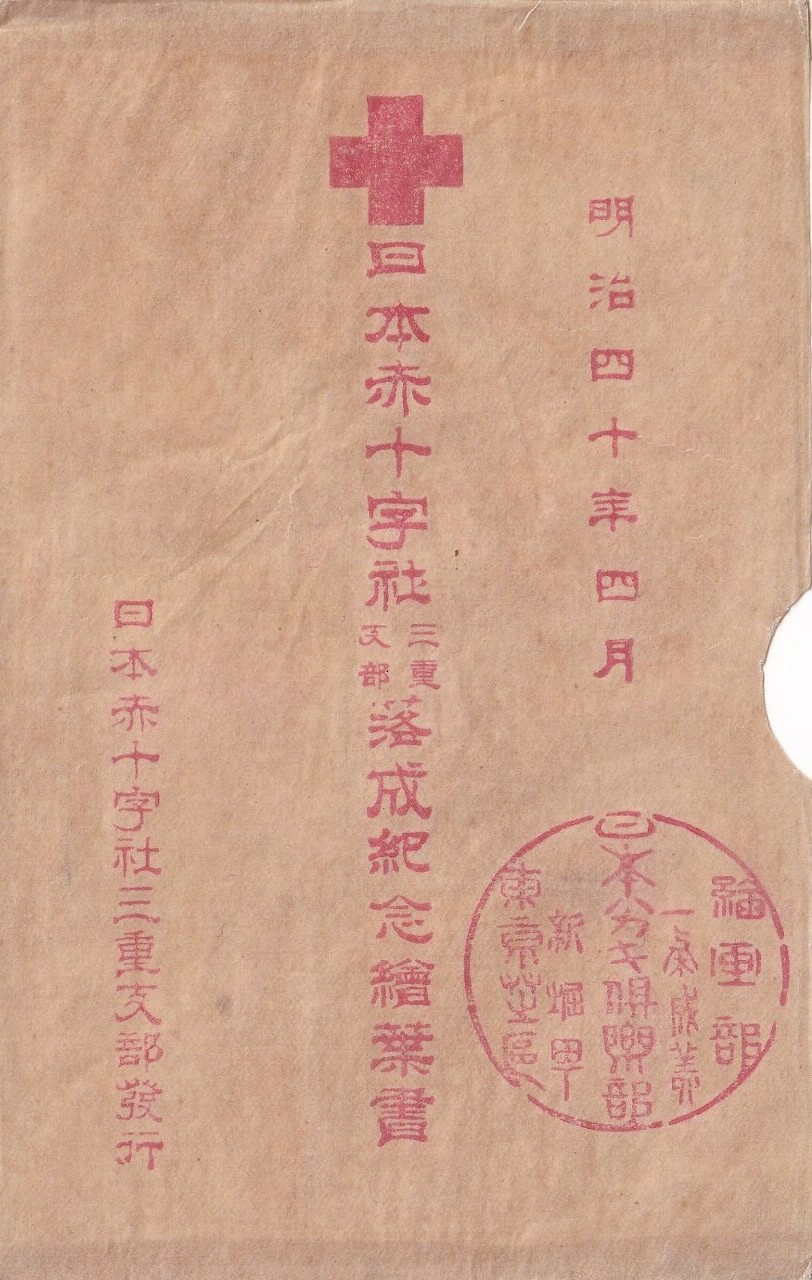 明治四十年四月
日本赤十字社三重支部落成紀念繪葉書
日本赤十字社三重支部發行
繪画部
一条成美
日本葉書倶楽部
新堀町
東京芝區